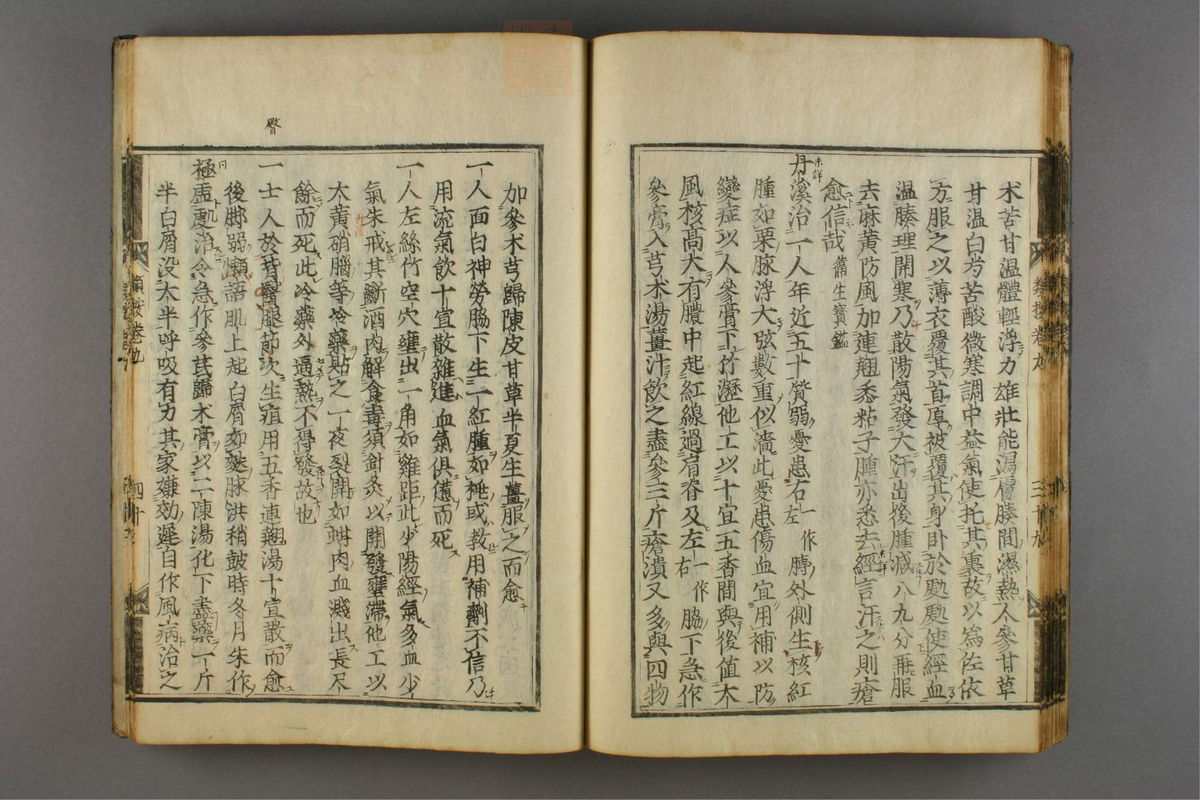 朮苦甘温體輕浮力雄壯能瀉膚腠間濕熱人參甘草
甘温白芍苦酸微寒調中益氣使托其裏故以爲佐依
方服之以薄衣覆其首厚被覆其身卧於處使經血
温腠理開寒乃散陽氣發大汗出後腫減八九分再服
去麻黄防風加連翹黍粘子腫亦悉去經言汗之則瘡
愈信哉 生寳鑑
丹溪治一人年近五十質弱憂患右一作左膊外側生核紅
腫如栗脉浮大弦數重似濇此憂患傷血宜用補以防
變症以人參膏下竹瀝他工以十宣五香間與後值木
風核高大有膿中起紅線過肩脊及左一作右脇下急作
參膏入芎朮湯薑汁飲之盡參三斤瘡潰又多與四物
類按卷九
三十九
加參朮芎歸陳皮甘草半夏生薑服之而愈
一人面白神勞脇下生一紅腫如桃或教用補劑不信乃
用流氣飲十宣散雜進血氣俱憊而死
一人左絲竹空穴壅出一角如雞距此少陽經氣多血少
氣朱戒其斷酒肉解食毒須針灸以開發壅滯他工以
大黄硝腦等冷藥貼之一夜裂開如蚶肉血濺出長尺
餘而死此冷藥外逼熱不得發故也
臀
一士人於背臀腿節次生疽用五香連翹湯十宣散而愈
後脚弱懶語肌上起白屑如麩脉洪稍鼓時冬月朱作
極虛處治令急作參芪歸朮膏以二陳湯化下盡藥一斤
半白屑没大半呼吸有力其家嫌効遲自作風病治之
類按卷九
四十